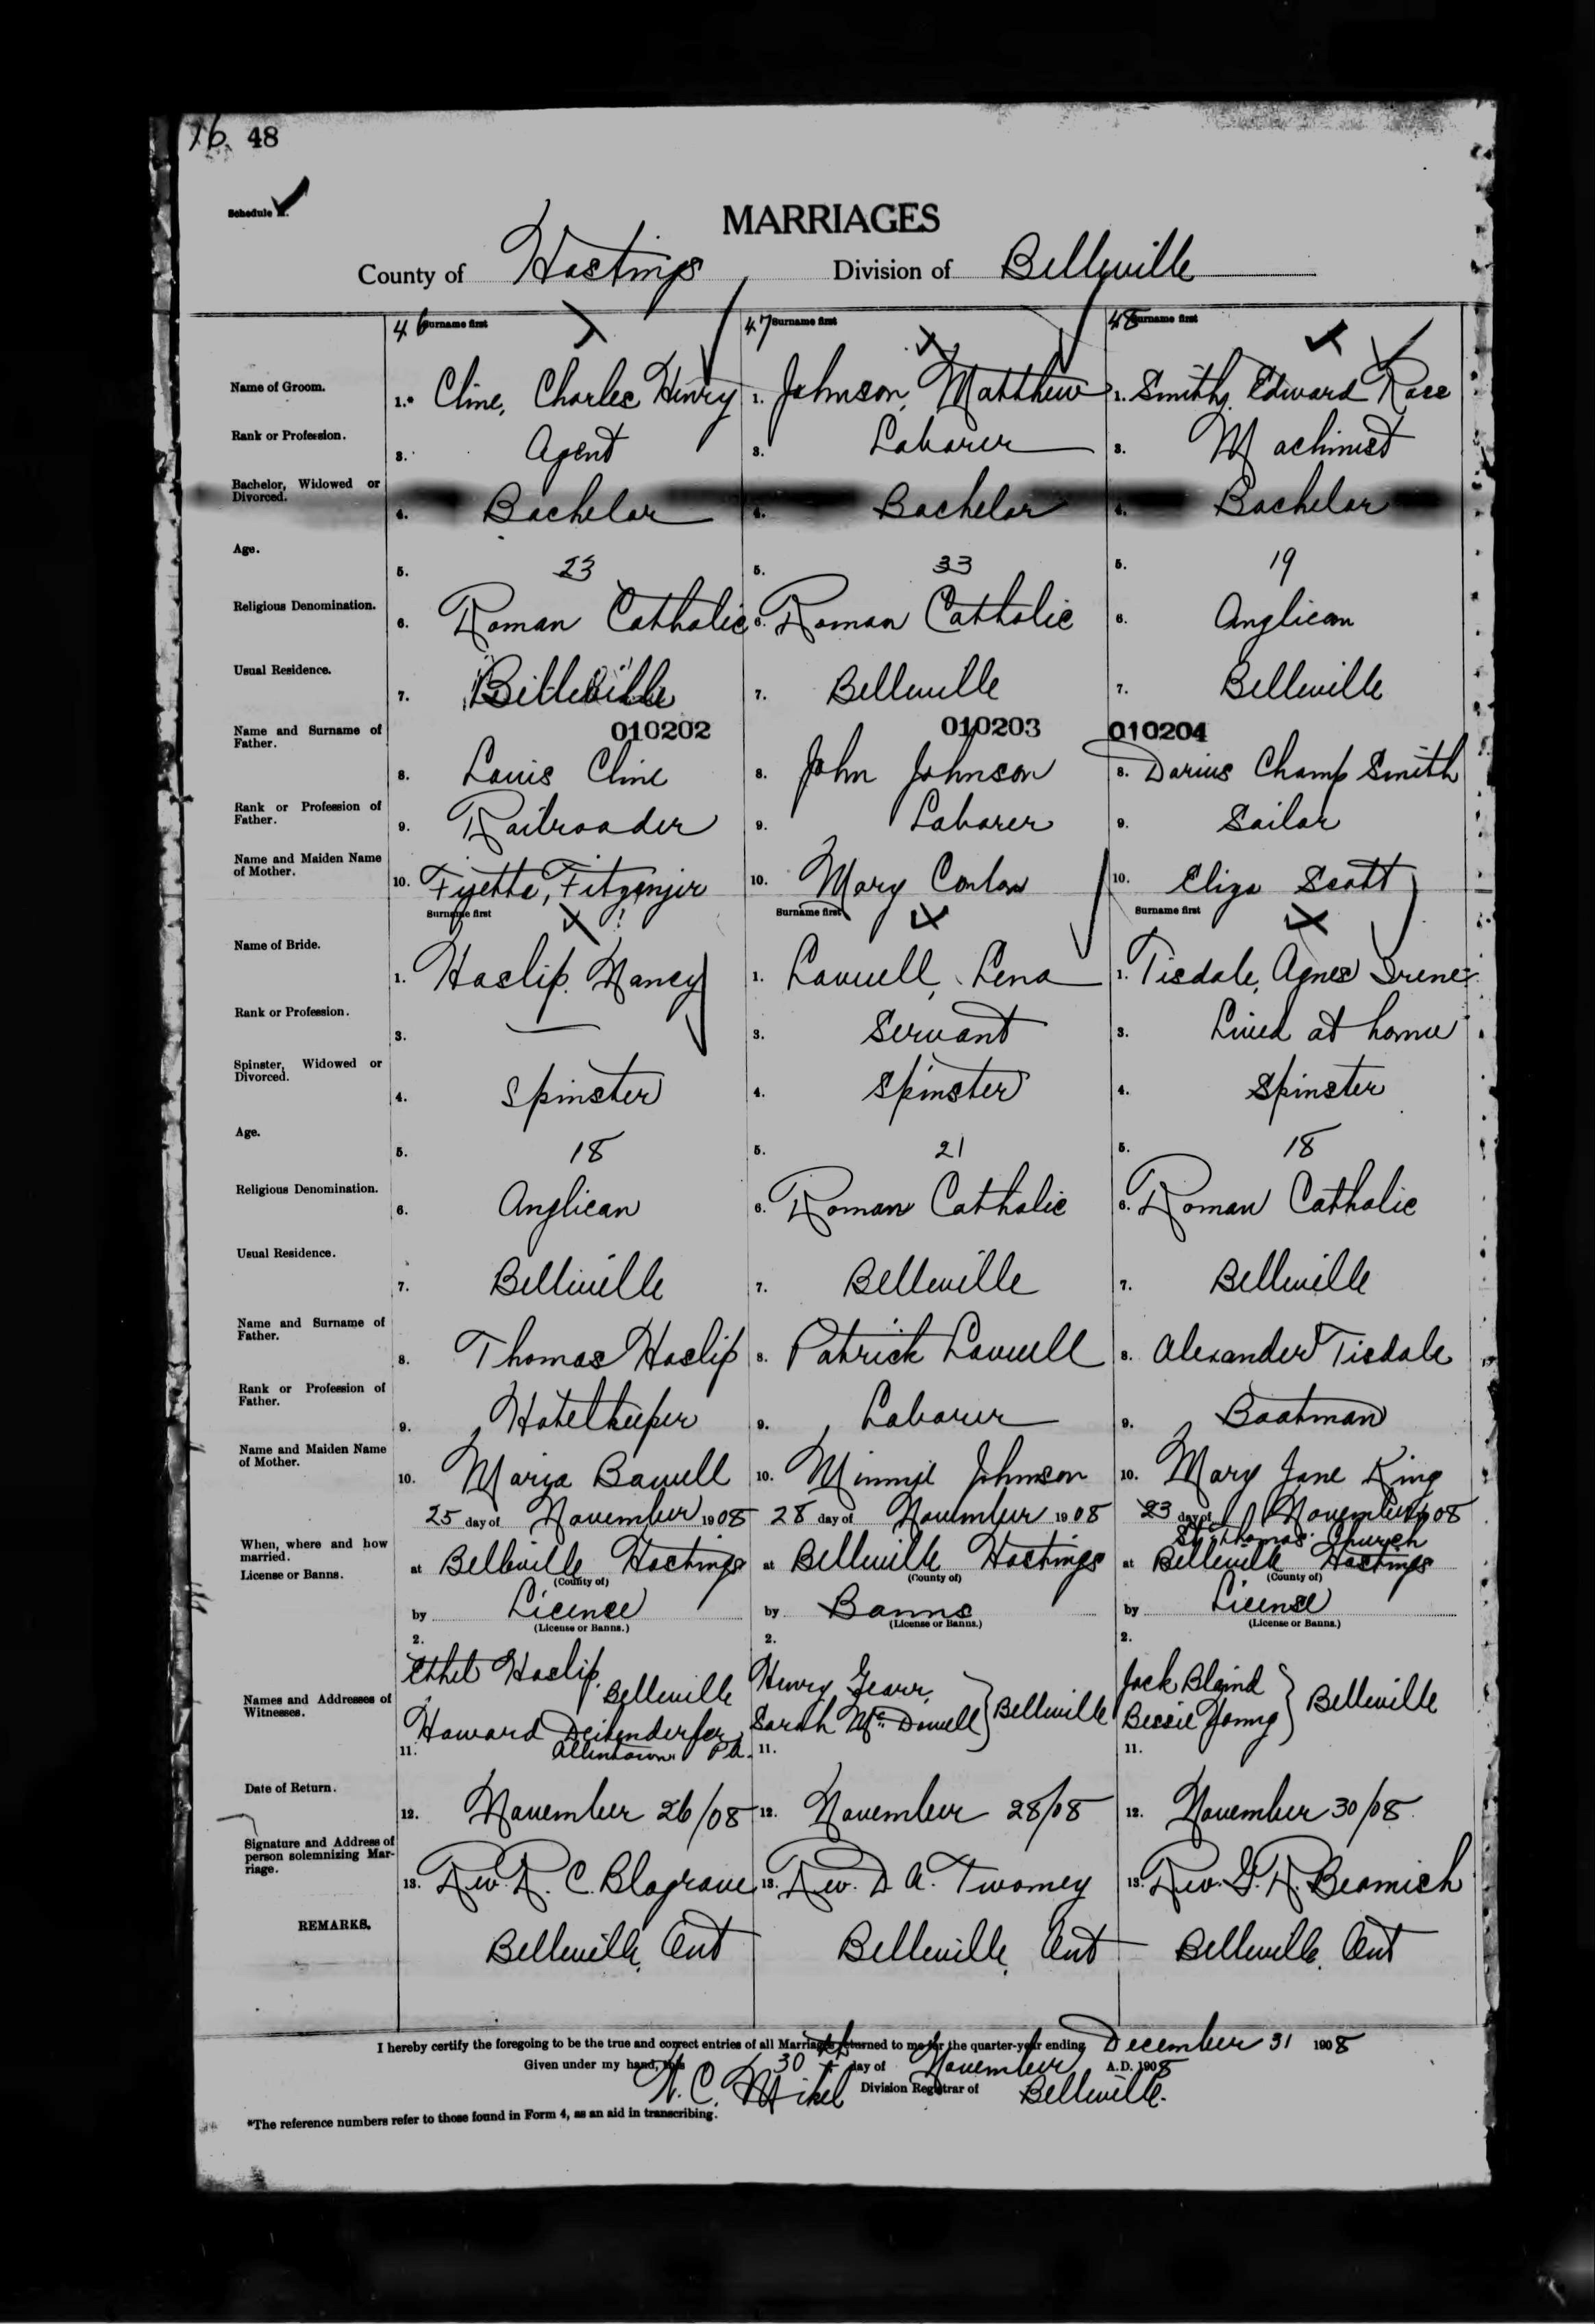 16. 48
Schedule
MARRIAGES
County of Hastings Division of Belleville
46 Surname first 47 Surname first 48 Surname first
Name of Groom. 1.* Cline, Charles Henry 1. Johnson, Matthew 1. Smith, Edward Ross
Rank or Profession. 3. Agent 3. Laborer 3. Machinist
Bachelor, Widowed or
Divorced. 4. Bachelor 4. Bachelor 4. Bachelor
Age. 5. 23 5. 33 5. 19
Religious Denomination. 6. Roman Catholic 6. Roman Catholic 6. Anglican
Usual Residence. 7. Belleville 7. Belleville 7. Belleville
010202 010203 010204
Name and Surname of
Father. 8. Louis Cline 8. John Johnson 8. Darius Champ Smith
Rank or Profession of
Father. 9. Railroader 9. Laborer 9. Sailor
Name and Maiden Name
of Mother. 10. 10. Mary Conlon 10. Eliza Scott
Surname first Surname first Surname first
Name of Bride. 1. Haslip, Nancy 1. Lena 1. Tisdale, Agnes Irene
Rank or Profession. 3. — 3. Servant 3. Lived at home
Spinster, Widowed or
Divorced. 4. Spinster 4. Spinster 4. Spinster
Age. 5. 18 5. 21 5. 18
Religious Denomination. 6. Anglican 6. Roman Catholic 6. Roman Catholic
Usual Residence. 7. Belleville 7. Belleville 7. Belleville
Name and Surname of
Father. 8. Thomas Haslip 8. Patrick 8. Alexander Tisdale
Rank or Profession of
Father. 9. Hotelkeeper 9. Laborer 9. Boatman
Name and Maiden Name
of Mother. 10. Maria 10. Minnie Johnson 10. Mary Jane King
25 day of November 1908 28 day of November 1908 23 day of November 1908
St. Thomas' Church
When, where and how
married. at Belleville Hastings at Belleville Hastings at Belleville Hastings
License or Banns. (County of) (County of) (County of)
by License by Banns by License
(License or Banns.) (License or Banns.) (License or Banns.)
2. 2. 2.
Ethel Haslip, Belleville Henry Jack
Names and Addresses of
Witnesses. Howard Deibenderfer Sarah McDowell } Belleville Bessie Young } Belleville
11. Allentown Pa. 11. 11.
Date of Return. 12. November 26/08 12. November 28/08 12. November 30/08
Signature and Address of
person solemnizing Mar-
riage. 13. Rev. R. C. Blagrave 13. Rev. D. A. Twomey 13. Rev. G. R. Beamish
REMARKS. Belleville, Ont Belleville, Ont Belleville, Ont
I hereby certify the foregoing to be the true and correct entries of all Marriages returned to me for the quarter-year ending December 31 1908
Given under my hand, this 30 day of November A.D. 1908
W. C. Mikel Division Registrar of Belleville.
*The reference numbers refer to those found in Form 4, as an aid in transcribing.